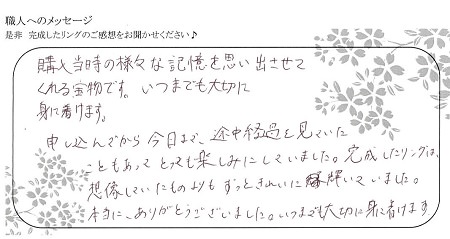 職人へのメッセージ
是非 完成したリングのご感想をお聞かせください♪
購入当時の様々な記憶を思い出させて
くれる宝物です。いつまでも大切に
身に着けます。
申し込んでから今日まで、途中経過を見ていた
こともあってとっても楽しみにしていました。完成したリングは、
想像していたものよりもずっときれいに輝いていました。
本当に、ありがとうございました。いつまでも大切に身に着けます